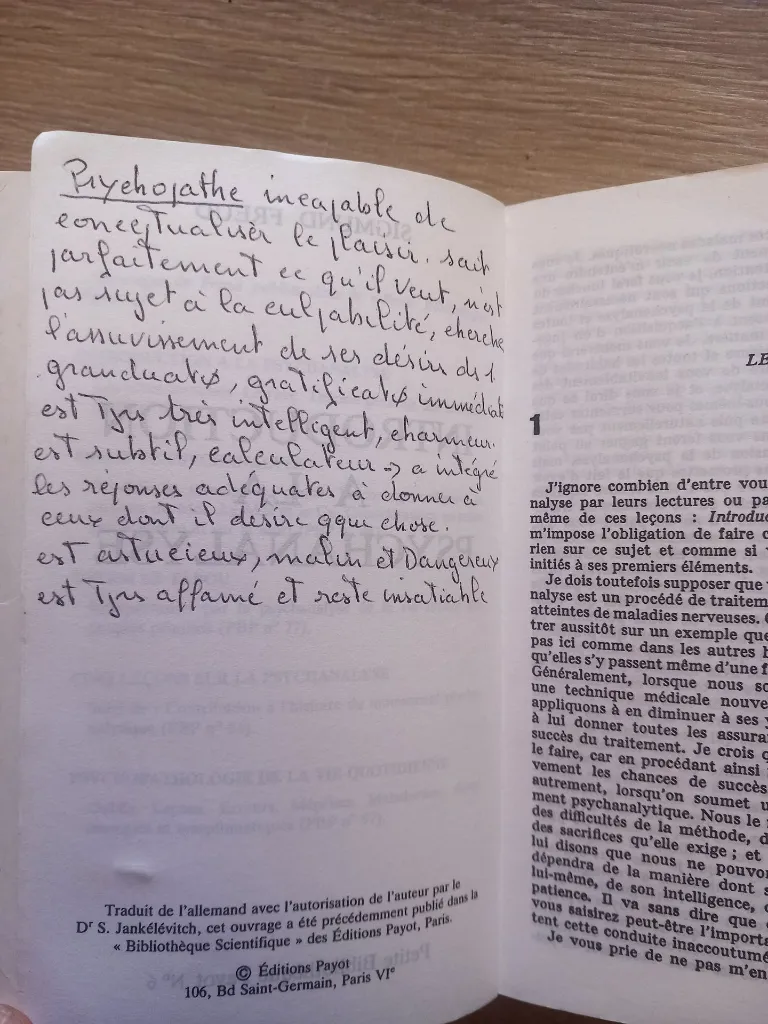 Psychopathe incapable de
conceptualiser le plaisir. sait
parfaitement ce qu'il veut, n'est
pas sujet à la culpabilité, cherche
l'assouvissement de ses désirs
gratificatø immédiat
est Tjrs très intelligent, charmeur.
est subtil, calculateur → a intégré
les réponses adéquates à donner à
ceux dont il désire qque chose.
est astucieux, malin et Dangereux
est Tjrs affamé et reste insatiable
Traduit de l'allemand avec l'autorisation de l'auteur par le
Dr S. Jankélévitch, cet ouvrage a été précédemment publié dans la
« Bibliothèque Scientifique » des Éditions Payot, Paris.
© Éditions Payot
106, Bd Saint-Germain, Paris VIe
LE
1
J'ignore combien d'entre vou
nalyse par leurs lectures ou pa
même de ces leçons : Introduc
m'impose l'obligation de faire c
rien sur ce sujet et comme si
initiés à ses premiers éléments.
Je dois toutefois supposer que
nalyse est un procédé de traitem
atteintes de maladies nerveuses.
trer aussitôt sur un exemple que
pas ici comme dans les autres
qu'elles s'y passent même d'une f
Généralement, lorsque nous so
une technique médicale nouve
appliquons à en diminuer à ses
à lui donner toutes les assura
succès du traitement. Je crois q
le faire, car en procédant ainsi
vement les chances de succès
autrement, lorsqu'on soumet u
ment psychanalytique. Nous le
des difficultés de la méthode, d
des sacrifices qu'elle exige ; et
lui disons que nous ne pouvo
dépendra de la manière dont s
lui-même, de son intelligence,
patience. Il va sans dire que
vous saisirez peut-être l'importa
tent cette conduite inaccoutumé
Je vous prie de ne pas m'en